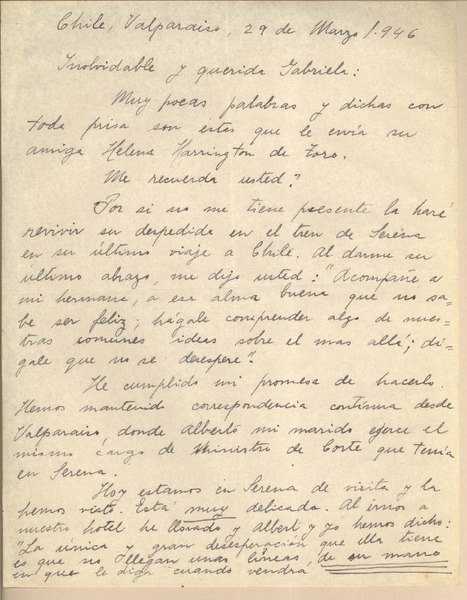 Chile, Valparaiso, 29 de Marzo 1.946
Inolvidable y querida Gabriela:
Muy pocas palabras y dichas con
toda prisa son estas que le envía su
amiga Helena Harrington de Toro.
Me recuerda usted?
Por si no me tiene presente la haré
revivir su despedida en el tren de Serena
en su último viaje a Chile. Al darme su
ultimo abrazo, me dijo usted: "Acompañe a
mi hermana, a esa alma buena que no sa-
be ser feliz; hágale comprender algo de nues-
tras comunes ideas sobre el mas allá; dí-
gale que no se desespere".
He cumplido mi promesa de hacerlo.
Hemos mantenido correspondencia contínua desde
Valparaiso, donde Alberto mi marido ejerce el
mismo cargo de Ministro de Corte que tenía
en Serena.
Hoy estamos en Serena de visita y la
hemos visto. Está muy delicada. Al irnos a
nuestro hotel he llorado y Albert y yo hemos dicho:
"La única y gran desesperación que ella tiene
es que no llegan unas líneas, de su mano
en que le diga cuando vendrá